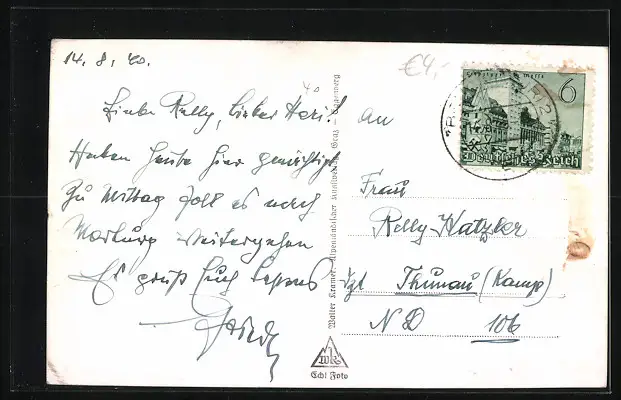 14. 8. 40.
€4,-
40
Liebe Relly, lieber Heri!
Haben heute hier genächtigt
Zu Mittag soll es nach
Marburg weitergehen
Es grüßt Euch
an
Frau
Relly Hatzler
Thunau (Kamp)
ND 106
6
Deutsches Reich
Walter Kramer, Alpenländischer Kunstverlag, Graz -
WK
Echt Foto